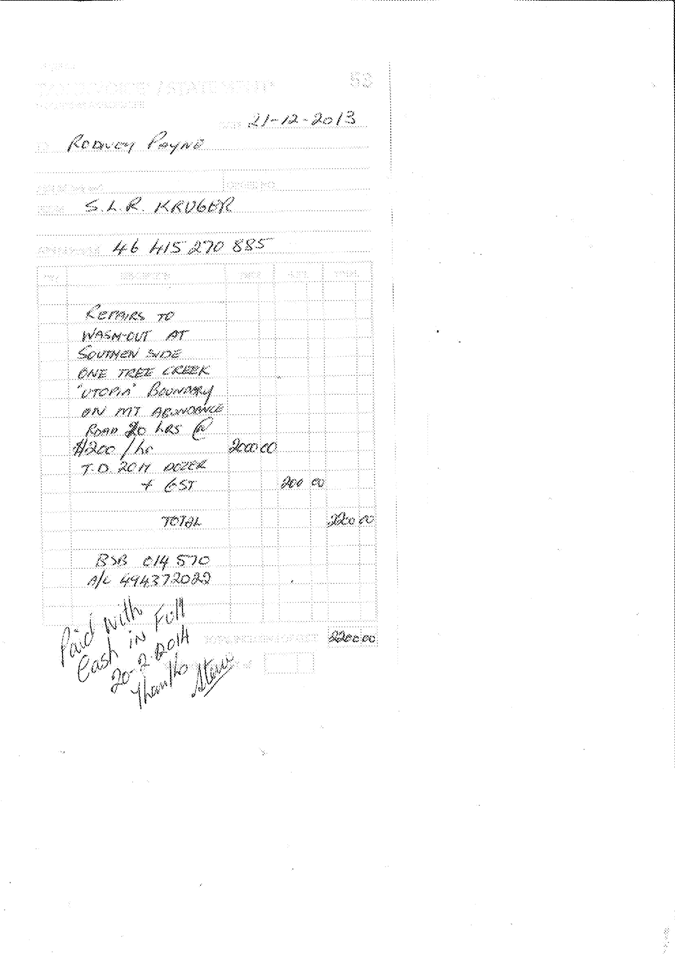 TAX INVOICE / STATEMENT 53
21-12-2013
TO Rodney Payne
S.L.R. KRUGER
46 415 270 885
REPAIRS TO
WASH-OUT AT
SOUTHEN SIDE
ONE TREE CREEK
"UTOPIA" BOUNDARY
ON MT ABUNDANCE
ROAD HRS @
$200 / hr 2000 00
T.D. 20H DOZER
+ GST 200 00
TOTAL 2200 00
BSB 014 570
A/C 494372022
2200 00
Paid with
Cash in Full
20-2-2014
Thanks Steve